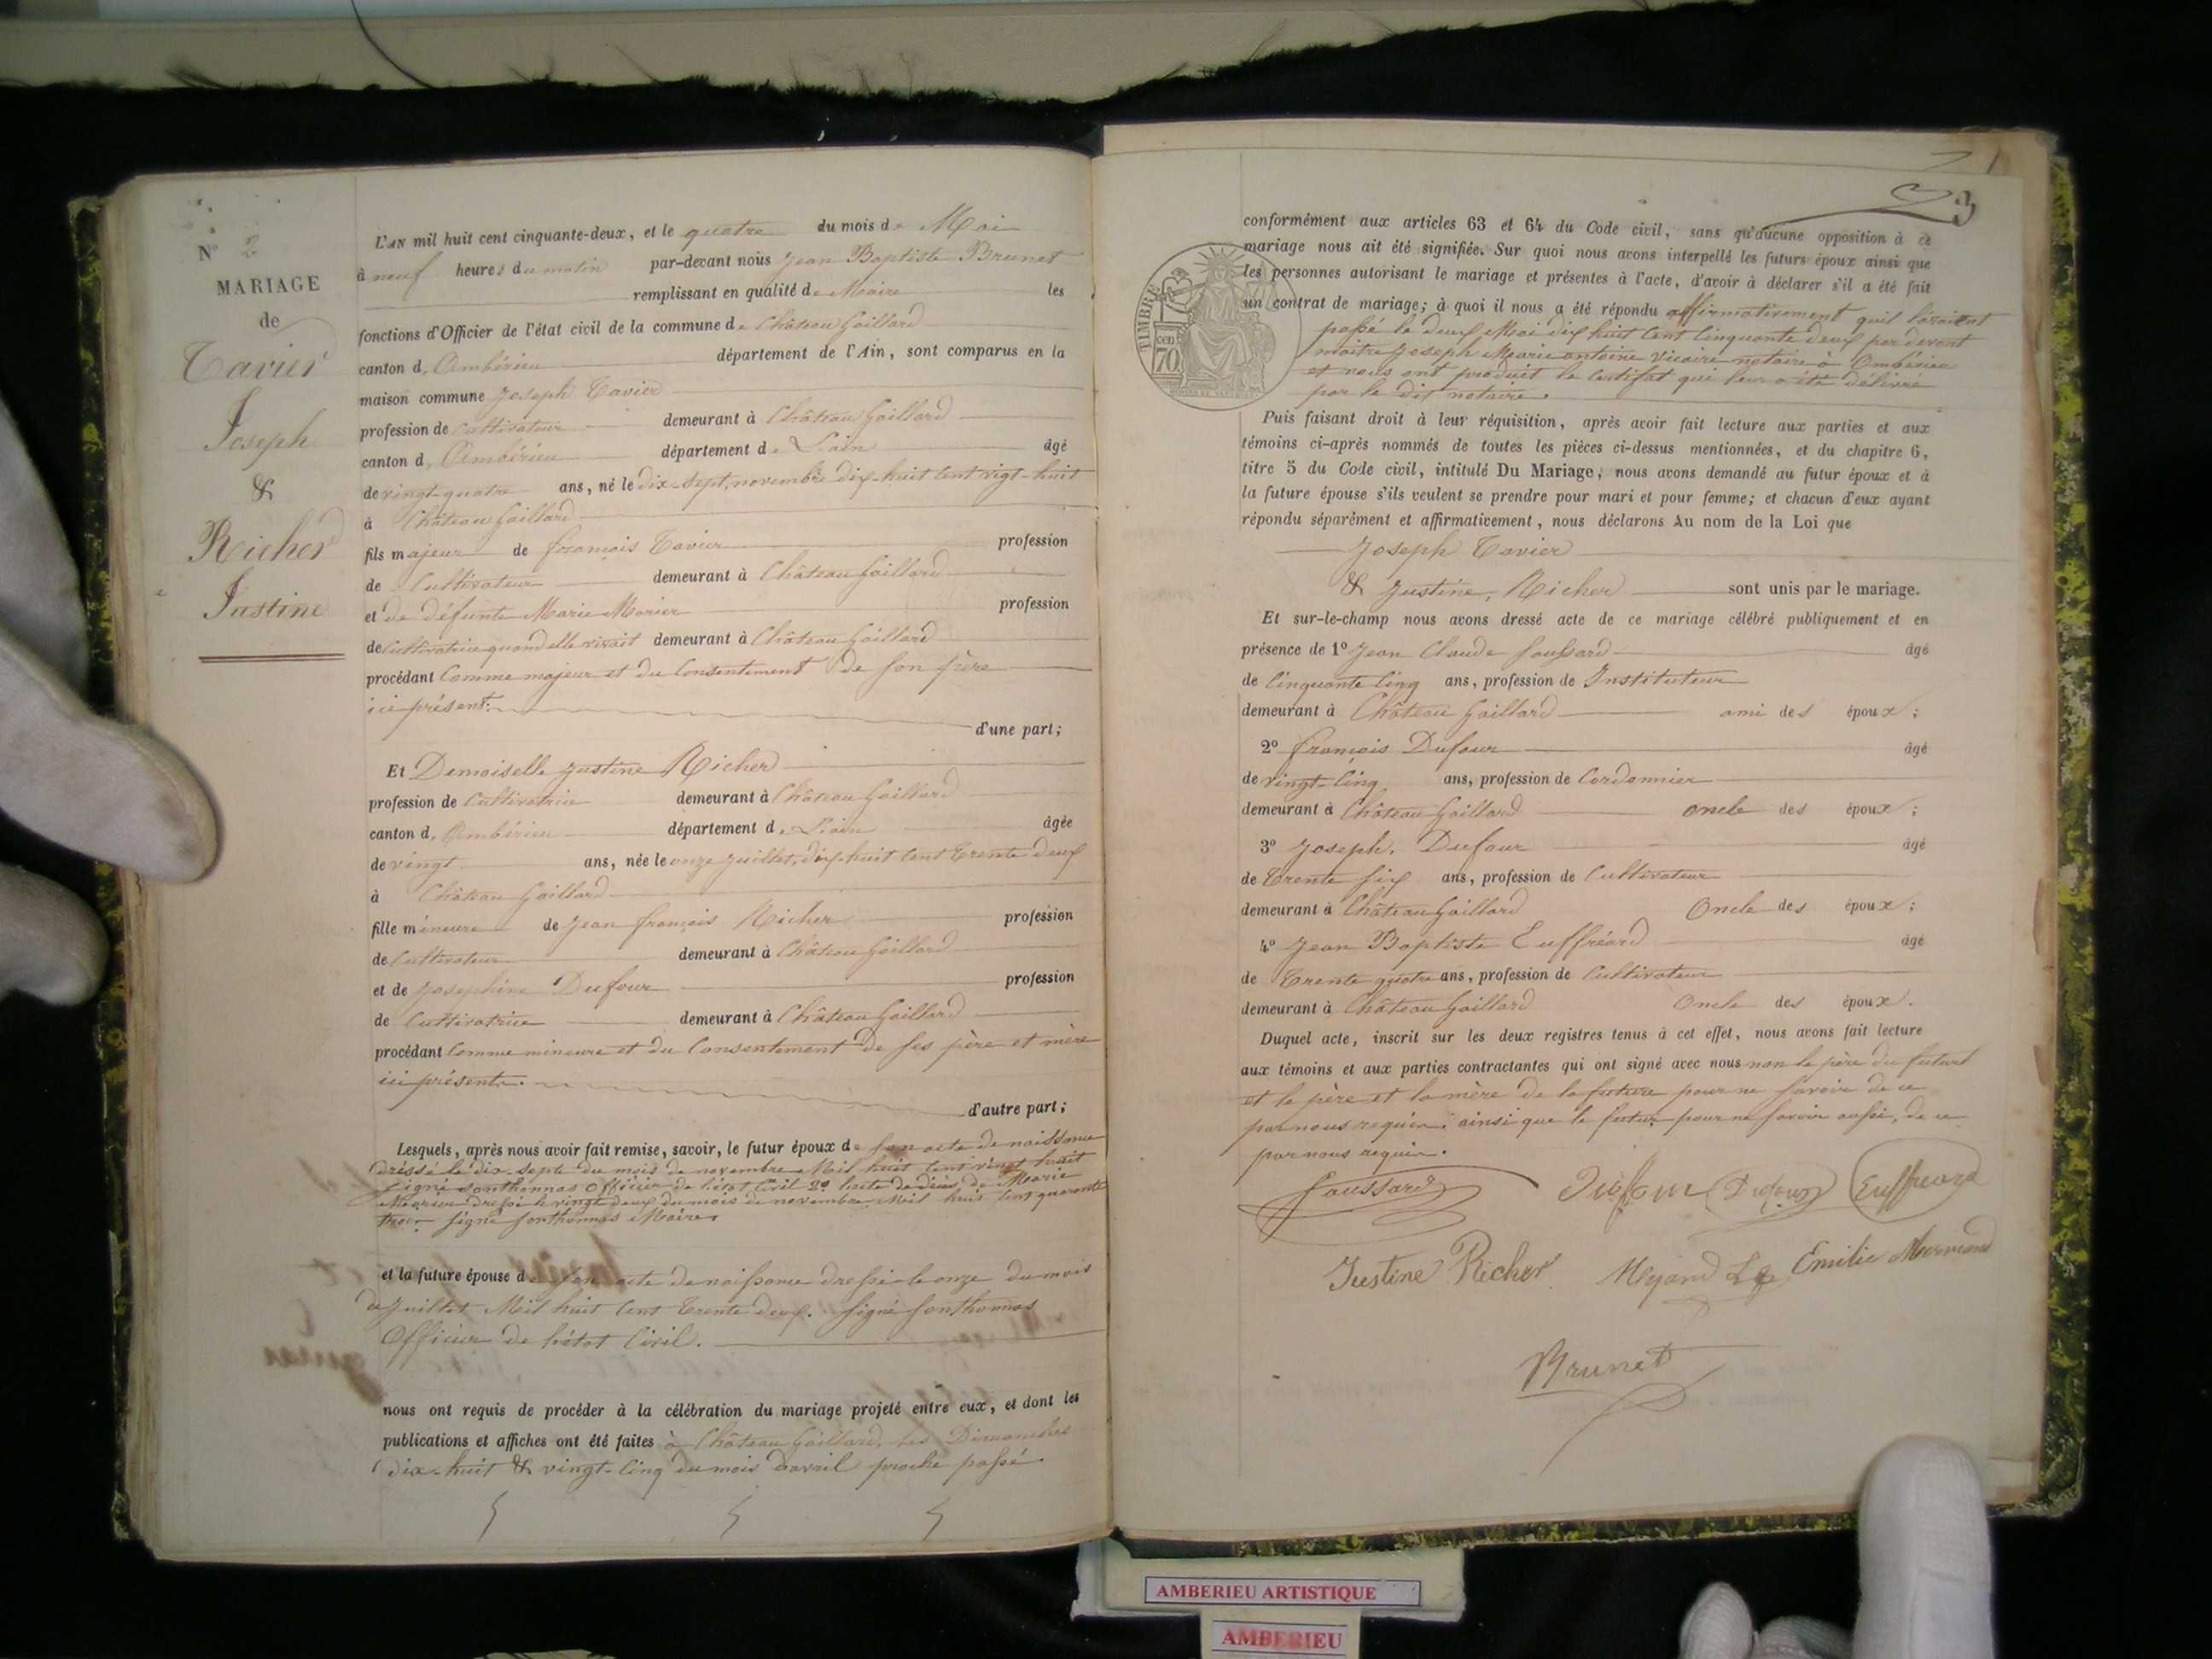 N° 2
MARIAGE
de
Tavier
Joseph
&
Richer
Justine
L'AN mil huit cent cinquante-deux, et le quatre du mois de Mai
à neuf heures du matin par-devant nous Jean Baptiste Brunet
remplissant en qualité de Maire les
fonctions d'Officier de l'état civil de la commune de Château Gaillard
canton d'Ambérieu département de l'Ain, sont comparus en la
maison commune Joseph Tavier
profession de Cultivateur demeurant à Château Gaillard
canton d'Ambérieu département de L'ain âgé
de vingt-quatre ans, né le dix-sept, novembre dix-huit cent vigt-huit
à Château Gaillard
fils majeur de françois Tavier profession
de Cultivateur demeurant à Château Gaillard
et de défunte Marie Morier profession
de Cultivatrice quand elle vivait demeurant à Château Gaillard
procédant Comme majeur et du Consentement de son père
ici présent.
d'une part;
Et Demoiselle Justine Richer
profession de Cultivatrice demeurant à Château Gaillard
canton d'Ambérieu département de L'ain âgée
de vingt ans, née le onze Juillet, dix-huit cent trente deux
à Château Gaillard
fille mineure de Jean françois Richer profession
de Cultivateur demeurant à Château Gaillard
et de Josephine Dufour profession
de Cultivatrice demeurant à Château Gaillard
procédant Comme mineure et du Consentement de ses père et mère
ici présents.
d'autre part;
Lesquels, après nous avoir fait remise, savoir, le futur époux de son acte de naissance
dréssé le dix-septe du mois de novembre Mil huit Cent vingt huit
signé Santhonnas Officier de l'état Civil 2° l'acte de décès de Marie
dressé le vingt deux du mois de novembre Mil huit Cent quarante
signé Santhonnas Maire.
et la future épouse de son acte de naissance dressé le onze du mois
de Juillet Mil huit Cent Trente deux. signé Santhonnas
Officier de l'état Civil.
nous ont requis de procéder à la célébration du mariage projeté entre eux, et dont les
publications et affiches ont été faites à Château Gaillard, les Dimanches
dix-huit & vingt-Cinq du mois d'avril proche passé.
3
conformément aux articles 63 et 64 du Code civil, sans qu'aucune opposition à ce
mariage nous ait été signifiée. Sur quoi nous avons interpellé les futurs époux ainsi que
les personnes autorisant le mariage et présentes à l'acte, d'avoir à déclarer s'il a été fait
un contrat de mariage; à quoi il nous a été répondu affirmativement quil l'avaient
passé le deux Mai dix huit Cent Cinquante deux par devant
maitre Joseph Marie antoine Vicaire notaire à Ambérieu
et nous ont produit le Certifat qui leur a été délivré
par le dit notaire.
TIMBRE
cen
70
Puis faisant droit à leur réquisition, après avoir fait lecture aux parties et aux
témoins ci-après nommés de toutes les pièces ci-dessus mentionnées, et du chapitre 6,
titre 5 du Code civil, intitulé Du Mariage, nous avons demandé au futur époux et à
la future épouse s'ils veulent se prendre pour mari et pour femme; et chacun d'eux ayant
répondu séparément et affirmativement, nous déclarons Au nom de la Loi que
Joseph Tavier
& Justine, Richer sont unis par le mariage.
Et sur-le-champ nous avons dressé acte de ce mariage célébré publiquement et en
présence de 1° Jean Claude Foussard âgé
de Cinquante Cinq ans, profession de Instituteur
demeurant à Château Gaillard ami des époux;
2° françois Dufour âgé
de vingt-Cinq ans, profession de Cordonnier
demeurant à Château Gaillard oncle des époux;
3° Joseph. Dufour âgé
de Trente six ans, profession de Cultivateur
demeurant à Château Gaillard Oncle des époux;
4° Jean Baptiste Euffréard âgé
de Trente quatre ans, profession de Cultivateur
demeurant à Château Gaillard Oncle des époux.
Duquel acte, inscrit sur les deux registres tenus à cet effet, nous avons fait lecture
aux témoins et aux parties contractantes qui ont signé avec nous non le père du futur
et le père et la mère de la future pour ne savoir de ce
par nous requis; ainsi que le futur pour ne savoir aussi, de ce
par nous requis.
Foussard Dufour Dufour Euffreard
Justine Richer Emilie
Brunet
AMBERIEU ARTISTIQUE
AMBERIEU